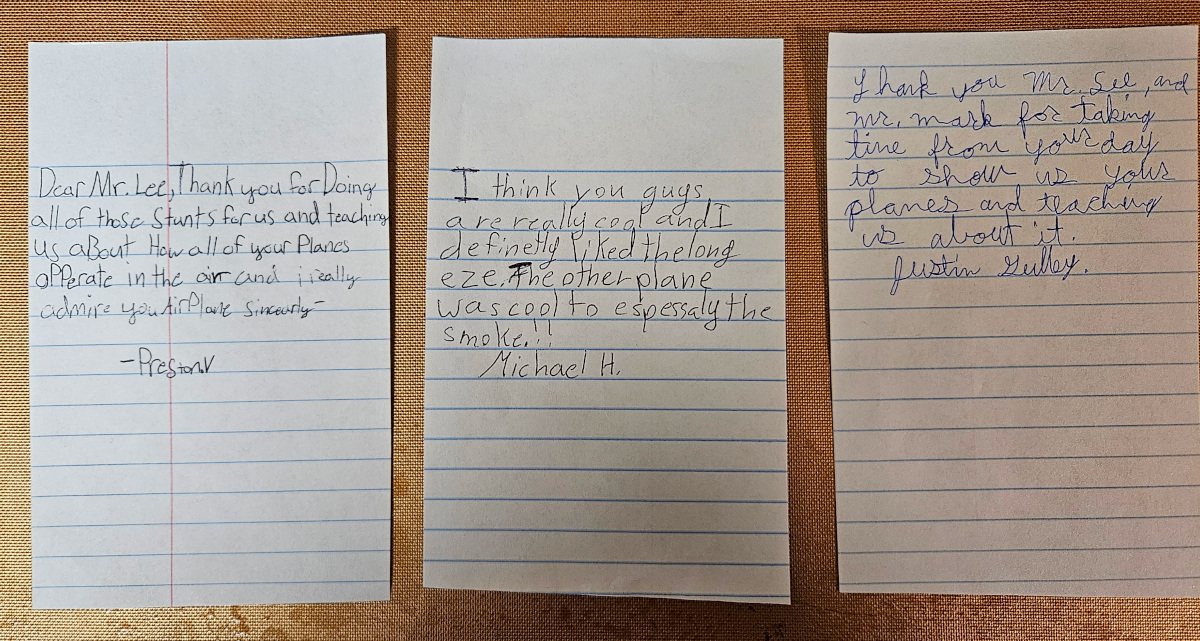 Dear Mr. Lee, Thank you for Doing
all of those Stunts for us and teaching
us aBout How all of your Planes
opperate in the air and i really
admire you AirPlane Sincearly-
-Preston.V
I think you guys
are really cool and I
definetly liked the long
eze. The other plane
was cool to espessaly the
smoke.!!
Michael H.
Thank you Mr. Lee, and
mr. mark for taking
time from your day
to show us your
planes and teaching
us about it.
Justin Gulley.